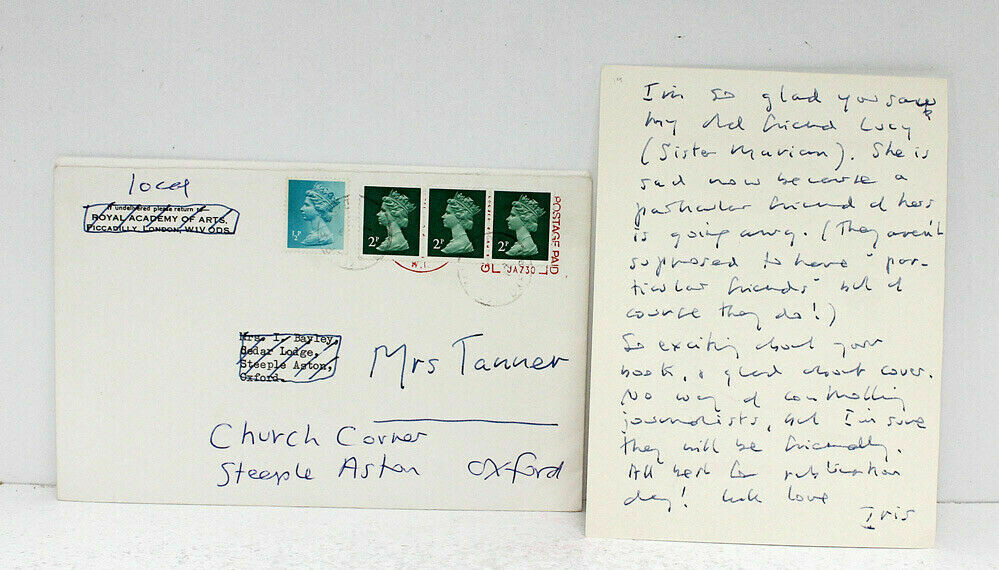 local
If undelivered please return to
ROYAL ACADEMY OF ARTS.
PICCADILLY, LONDON, W1V ODS
½P
2P
2P
2P
POSTAGE PAID
GL
JA730
Mrs. I. Bayley,
Cedar Lodge,
Steeple Aston,
Oxford.
Mrs Tanner
Church Corner
Steeple Aston Oxford
I'm so glad you saw
my old friend Lucy
(Sister Marian). She is
sad now because a
particular friend of hers
is going away. (They aren't
supposed to have "par-
ticular friends" but of
course they do!)
So exciting about your
book, & glad about cover.
No way of controlling
journalists, but I'm sure
they will be friendly.
All best for publication
day! Much love
Iris